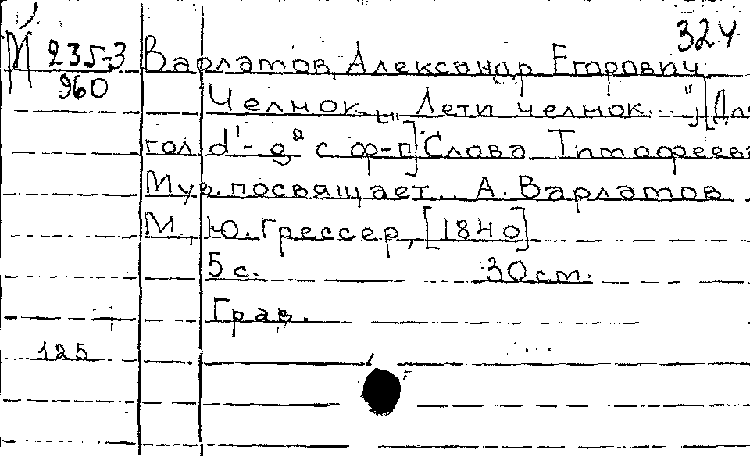 324
М 235-3 Варлатов, Александр Егорович
960
Челнок. „Лети челнок..."; [Дл
гол d¹-g² с ф-п] Слова Тимофеева
Муз. посвящает.. А. Варлатов
М., Ю. Грессер, [1840]
5 с. 30 см.
Грав.
125